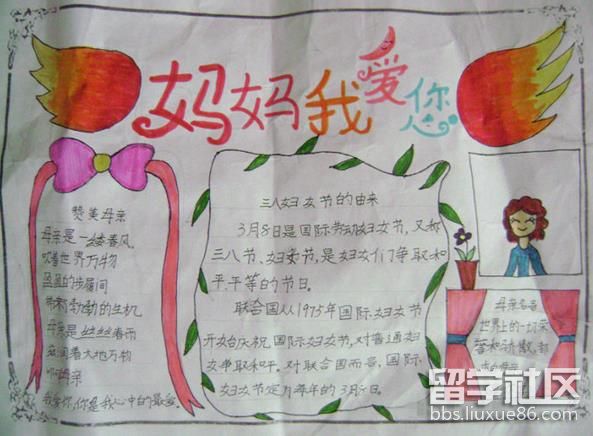 妈妈我爱您
赞美母亲
母亲是一缕春风
吹着世界万物
盈盈的步履间
带来勃勃的生机
母亲是丝丝春雨
滋润着大地万物
啊母亲
我爱你,你是我心中的最爱。
三八妇女节的由来
3月8日是国际劳动妇女节,又称
三八节、妇女节,是妇女们争取和
平、平等的节日。
联合国从1975年国际妇女节
开始庆祝,国际妇女节,对普通妇
女争取和平。对联合国而言,国际
妇女节定为每年的3月8日。
母亲名言
世界上的一切荣
留学社区
bbs.liuxue86.com